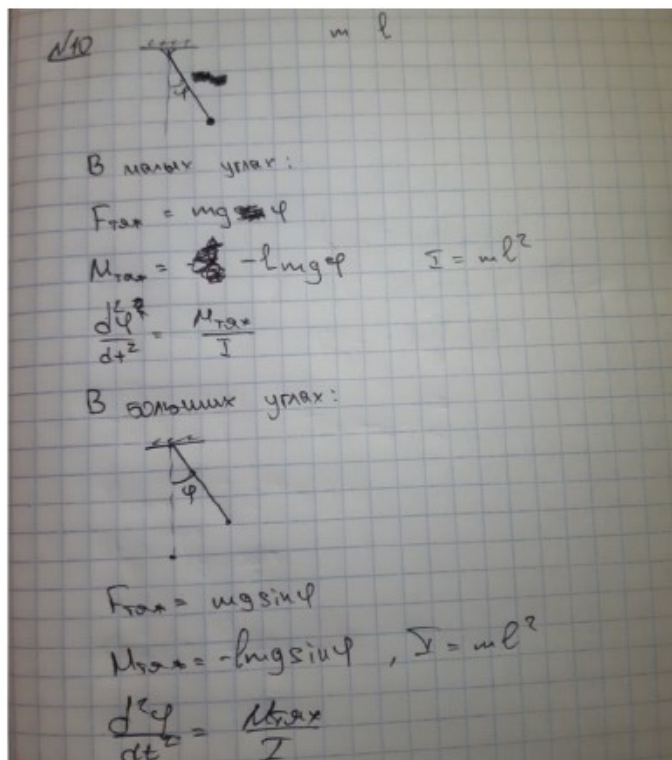 №10 m l
φ
В малых углах:
Fтяж = mg φ
Mтяж = -lmgφ I = ml²
d²φ/dt² = Mтяж/I
В больших углах:
φ
Fтяж = mg sinφ
Mтяж = -lmg sinφ , I = ml²
d²φ/dt² = Mтях/I